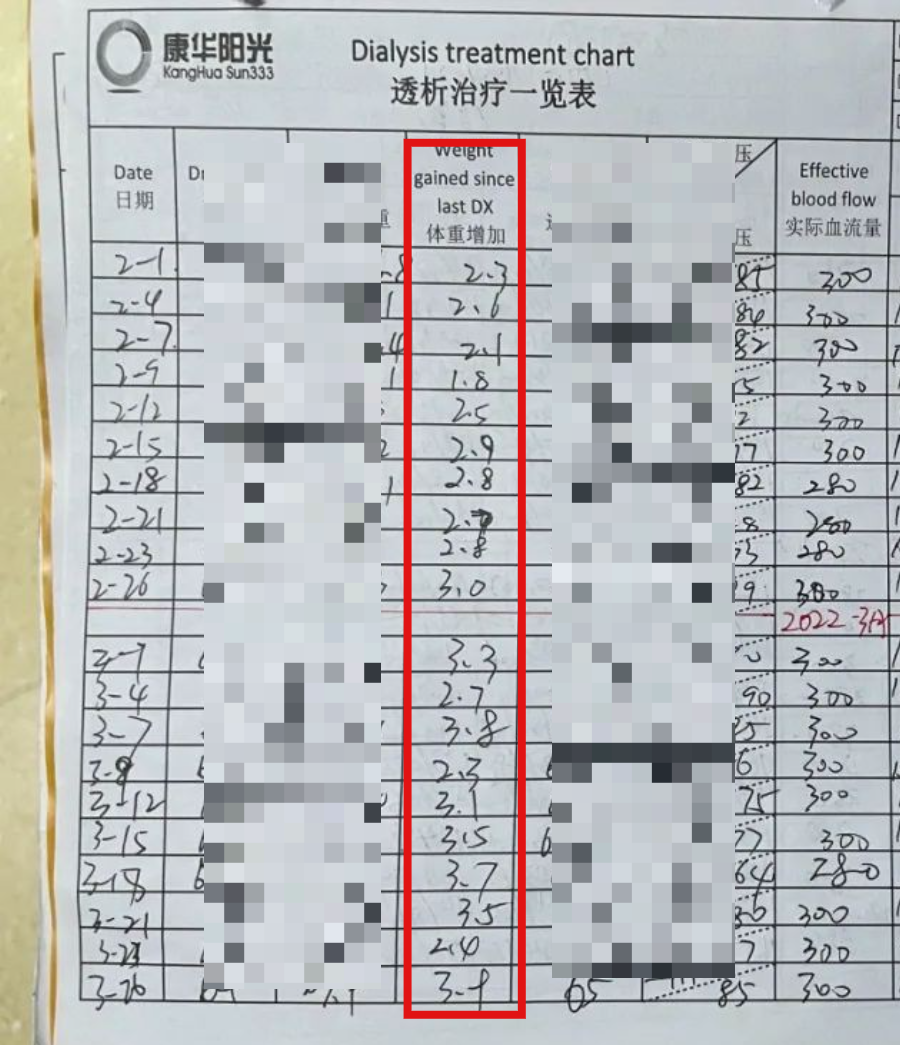 康华阳光
KangHua Sun333
Dialysis treatment chart
透析治疗一览表
Date
日期
Weight
gained since
last DX
体重增加
压
压
Effective
blood flow
实际血流量
2-1 2.3 85 300
2-4 2.6 84 300
2-7 2.1 82 300
2-9 1.8 300
2-12 2.5 300
2-15 2.9 300
2-18 2.8 82 280
2-21
2-23 2.8 280
2-26 3.0 300
2022-3月
3.3 300
3-4 2.7 90 300
3-7 3.8 300
3-9 2.3 300
3-12 3.1 75 300
3-15 3.5 77 300
3-18 3.7 64 280
3-21 3.5 300
3-23 2.4 300
3-26 65 85 300